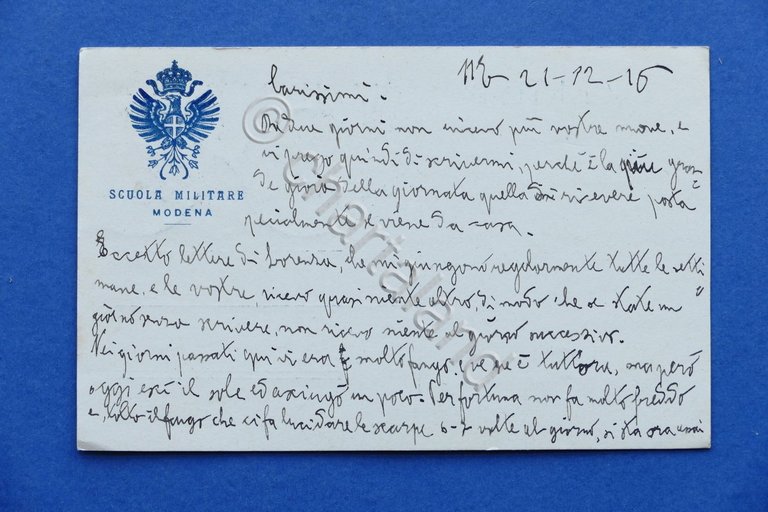 SCUOLA MILITARE
MODENA
21-12-16
Carissimi:
Da due giorni non ricevo più vostre nuove, e
vi prego quindi di scrivermi, perché è la più gran
de gioia della giornata quella di ricevere posta
specialmente se viene da casa.
Eccetto lettere di Lorenza, che mi giungono regolarmente tutte le setti
mane, e le vostre ricevo quasi niente altro, di modo che se state un
giorno senza scrivere, non ricevo niente al giorno successivo.
Nei giorni passati qui vi era molto fango, ve ne è tuttora, ma però
oggi esce il sole ed asciugò un poco. Per fortuna non fa molto freddo
e, tolto il fango che ci fa lucidare le scarpe 6-7 volte al giorno, si sta ora assai
© Chartaland